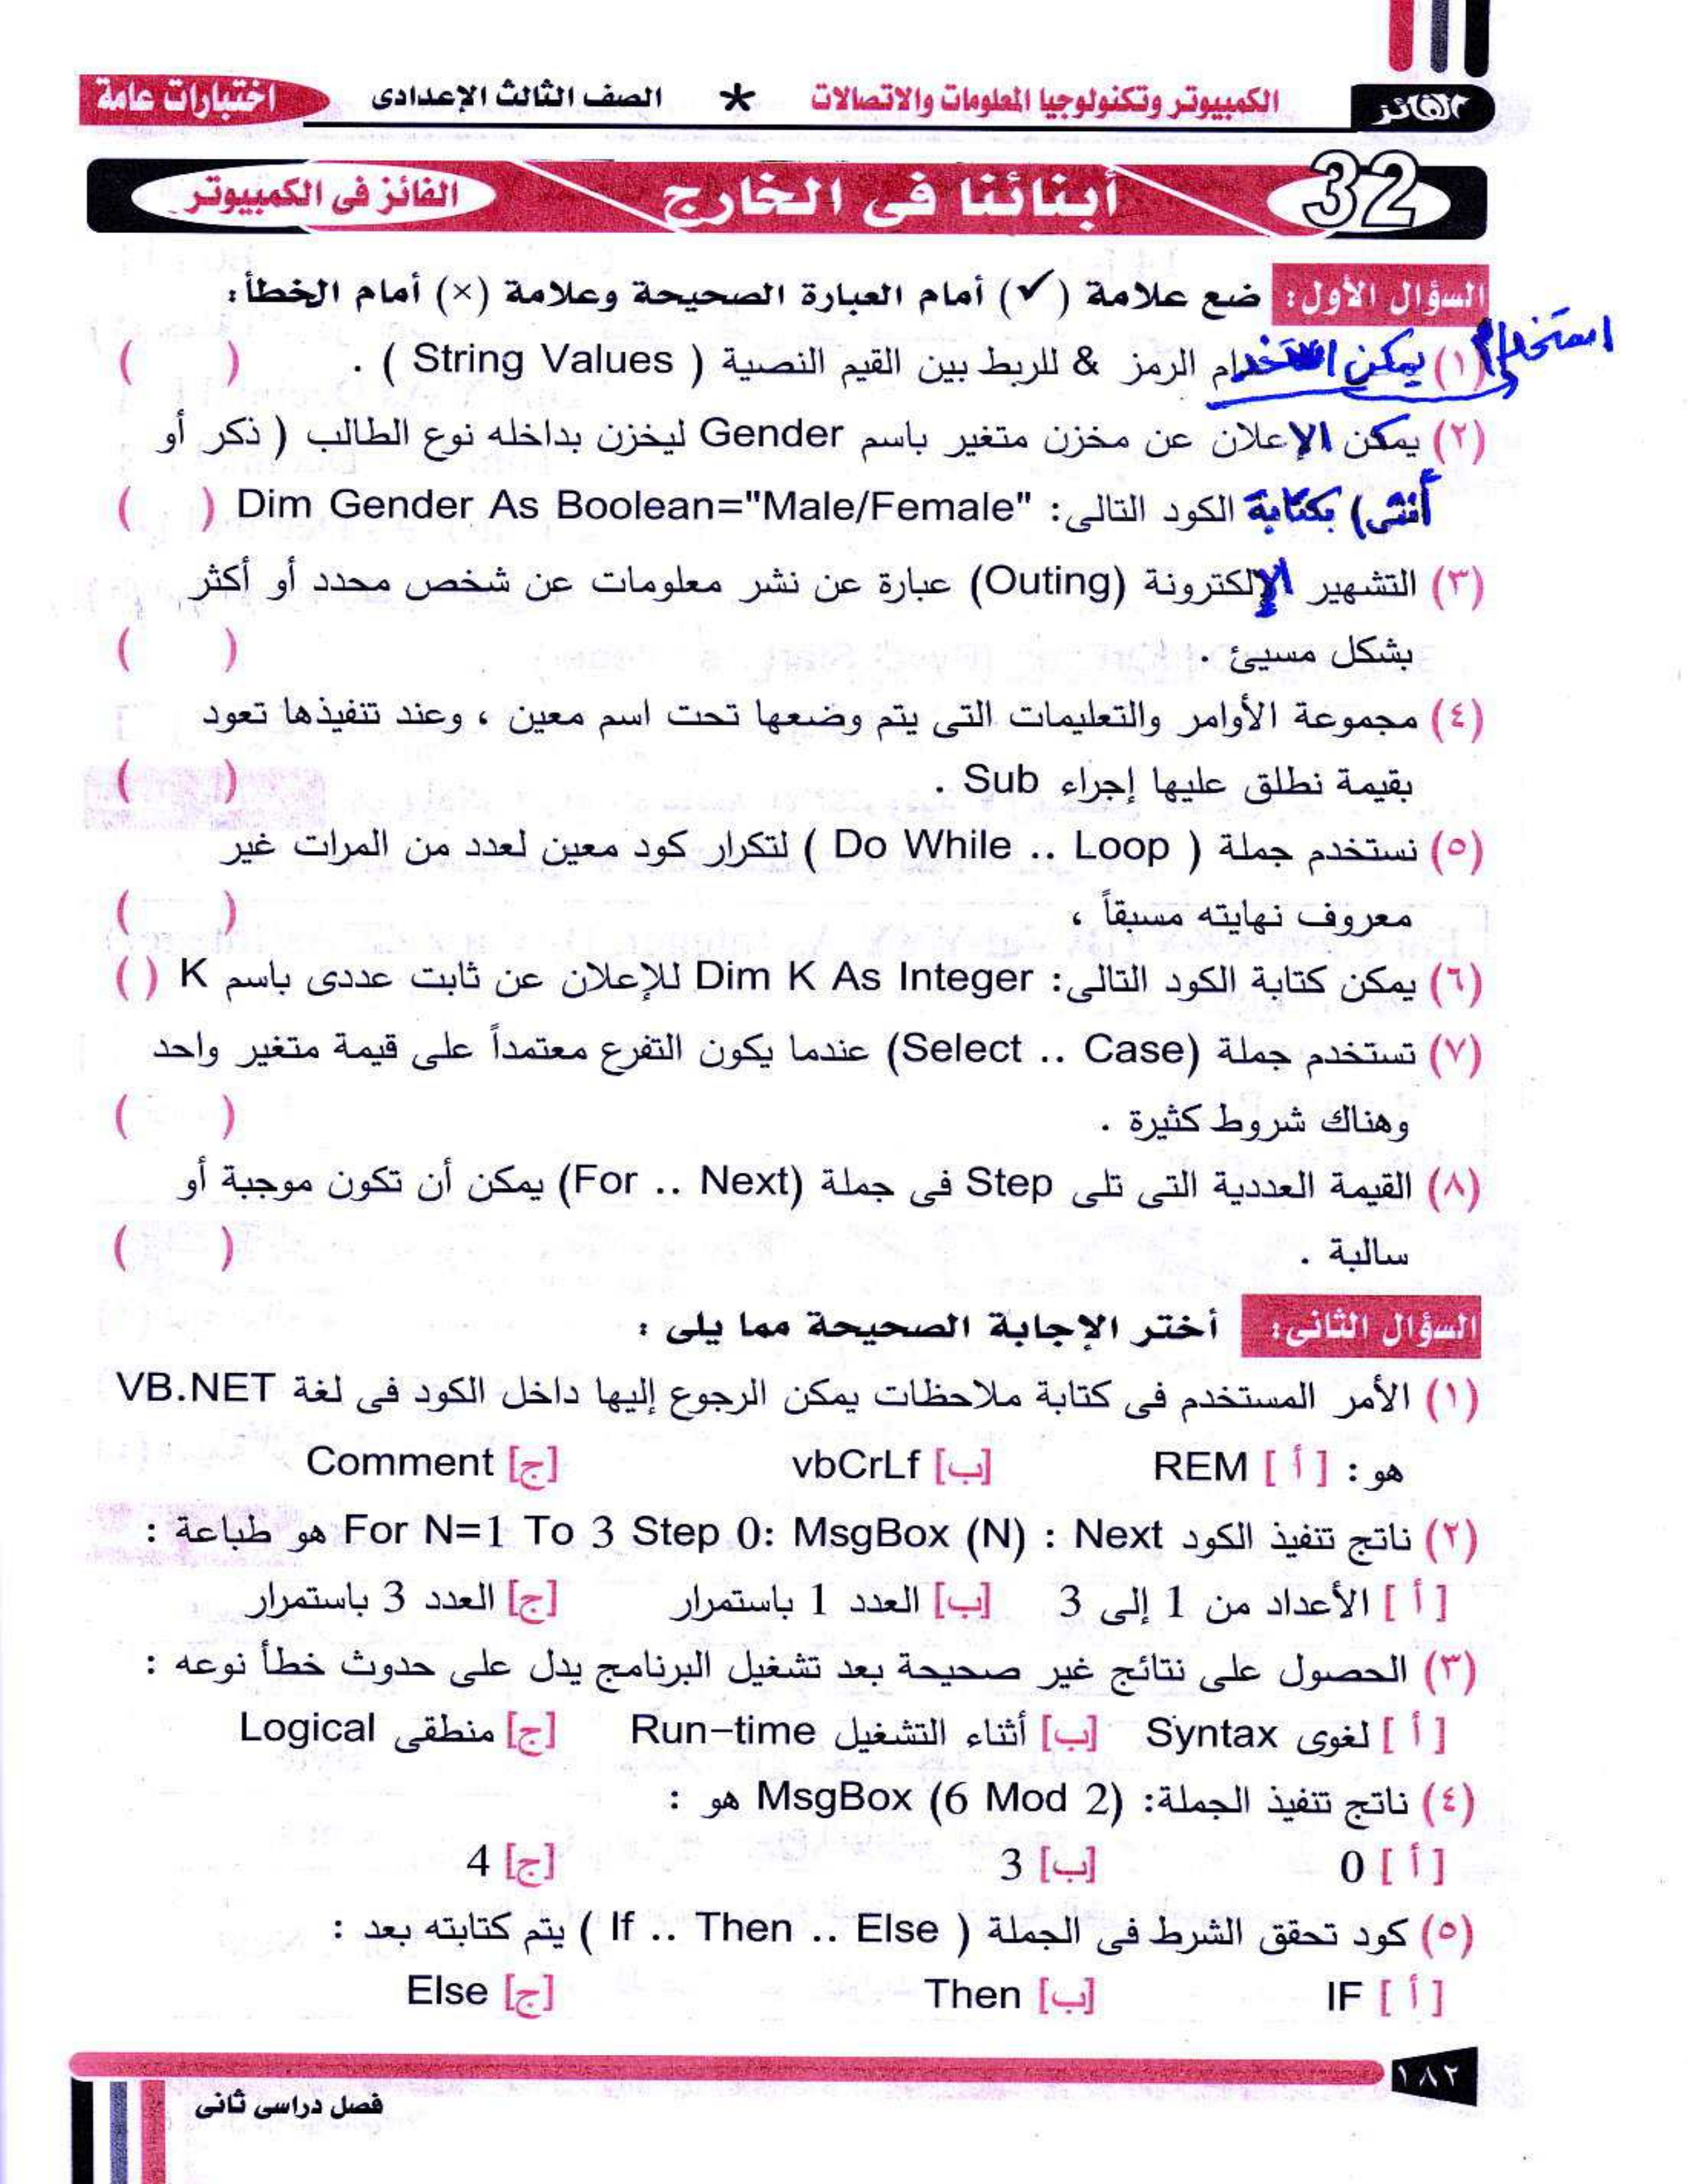 الفائز
الكمبيوتر وتكنولوجيا المعلومات والاتصالات * الصف الثالث الإعدادى
اختبارات عامة
32 أبنائنا فى الخارج الفائز فى الكمبيوتر
السؤال الأول: ضع علامة (✓) أمام العبارة الصحيحة وعلامة (×) أمام الخطأ:
استخدام
(١) يمكن استخدام الرمز & للربط بين القيم النصية ( String Values ) . ( )
(٢) يمكن الإعلان عن مخزن متغير باسم Gender ليخزن بداخله نوع الطالب ( ذكر أو
أنثى) بكتابة الكود التالى: Dim Gender As Boolean="Male/Female" ( )
(٣) التشهير الإلكترونة (Outing) عبارة عن نشر معلومات عن شخص محدد أو أكثر
بشكل مسيئ . ( )
(٤) مجموعة الأوامر والتعليمات التى يتم وضعها تحت اسم معين ، وعند تنفيذها تعود
بقيمة نطلق عليها إجراء Sub . ( )
(٥) نستخدم جملة ( Do While .. Loop ) لتكرار كود معين لعدد من المرات غير
معروف نهايته مسبقاً ، ( )
(٦) يمكن كتابة الكود التالى: Dim K As Integer للإعلان عن ثابت عددى باسم K ( )
(٧) تستخدم جملة (Select .. Case) عندما يكون التفرع معتمداً على قيمة متغير واحد
وهناك شروط كثيرة . ( )
(٨) القيمة العددية التى تلى Step فى جملة (For .. Next) يمكن أن تكون موجبة أو
سالبة . ( )
السؤال الثانى: أختر الإجابة الصحيحة مما يلى :
(١) الأمر المستخدم فى كتابة ملاحظات يمكن الرجوع إليها داخل الكود فى لغة VB.NET
هو : [ أ ] REM [ب] vbCrLf [ج] Comment
(٢) ناتج تنفيذ الكود For N=1 To 3 Step 0: MsgBox (N) : Next هو طباعة :
[ أ ] الأعداد من 1 إلى 3 [ب] العدد 1 باستمرار [ج] العدد 3 باستمرار
(٣) الحصول على نتائج غير صحيحة بعد تشغيل البرنامج يدل على حدوث خطأ نوعه :
[ أ ] لغوى Syntax [ب] أثناء التشغيل Run-time [ج] منطقى Logical
(٤) ناتج تنفيذ الجملة: MsgBox (6 Mod 2) هو :
[ أ ] 0 [ب] 3 [ج] 4
(٥) كود تحقق الشرط فى الجملة ( If .. Then .. Else ) يتم كتابته بعد :
[ أ ] IF [ب] Then [ج] Else
١٨٢
فصل دراسى ثانى